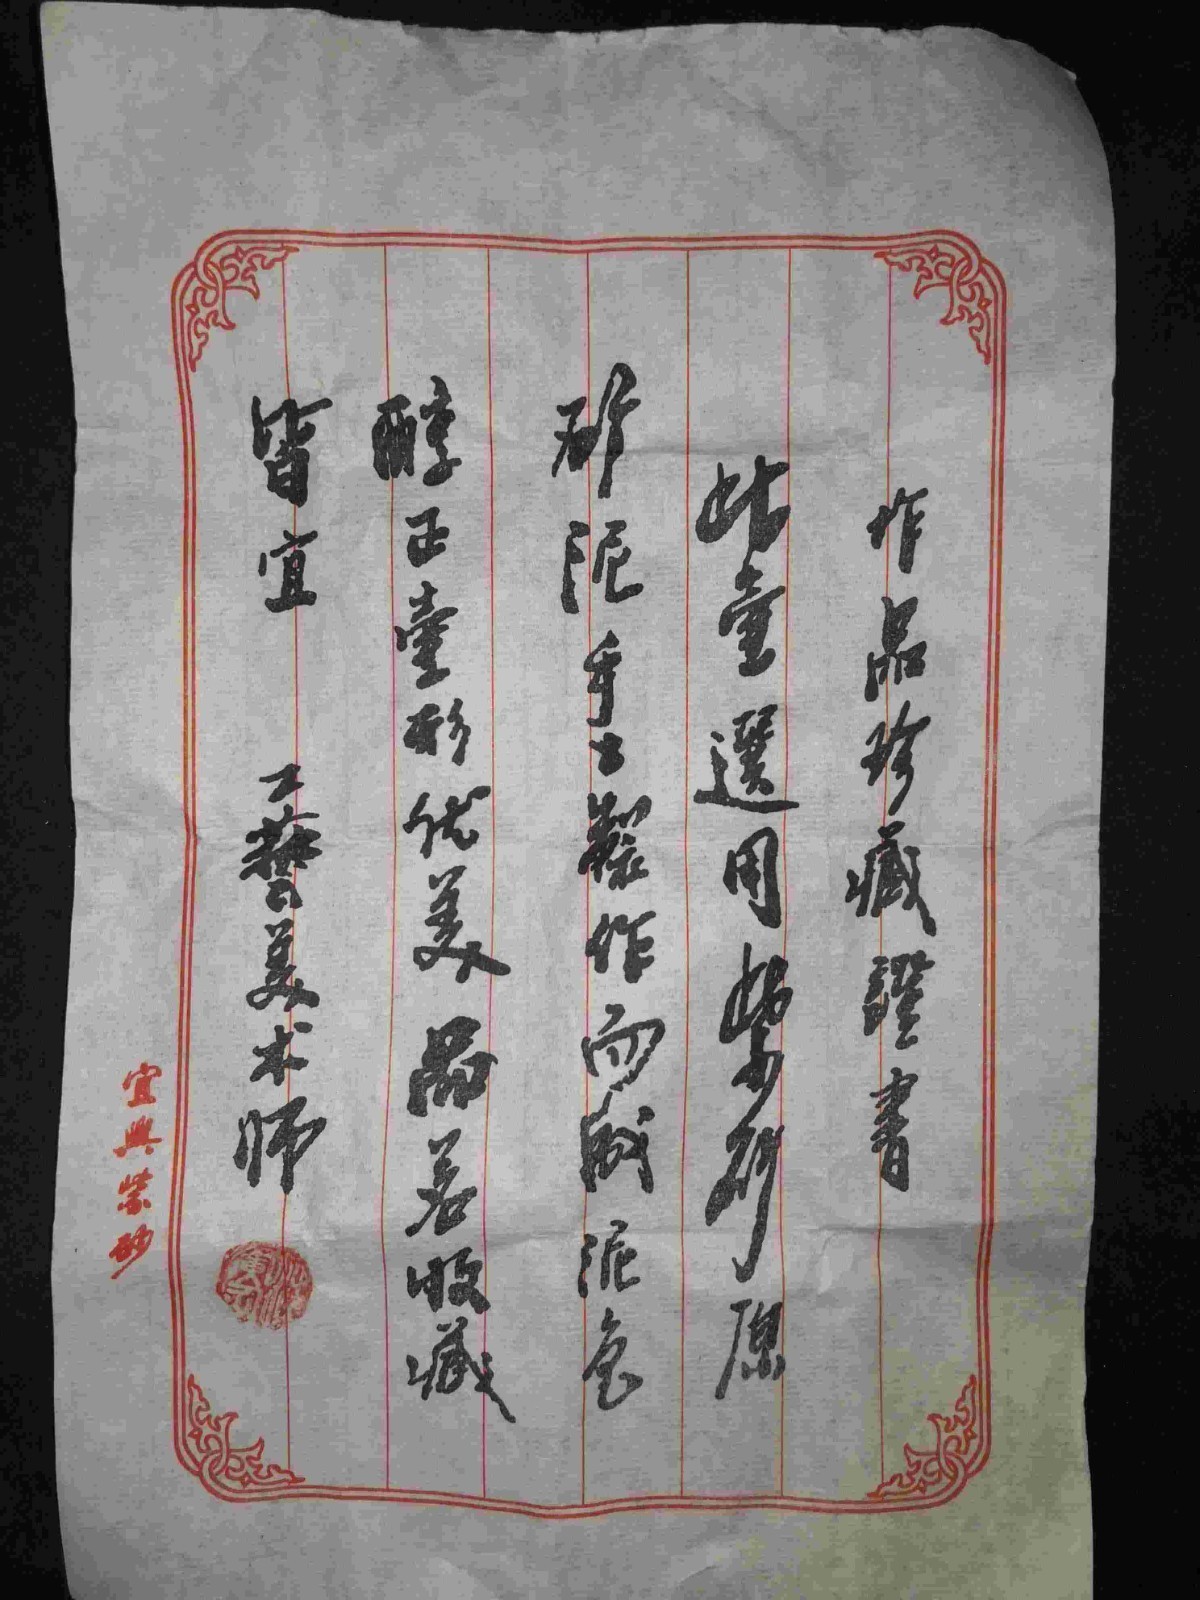 作品珍藏證書
此壶選用紫砂原
矿泥手工製作而成泥色
醇正壷形优美品茗收藏
皆宜 工藝美术师
宜興紫砂